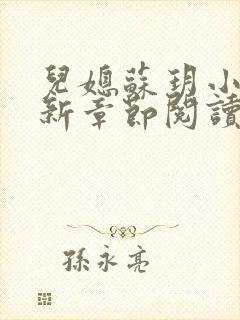 兒媳蘇玥小
新章節閱讀
孫永亮